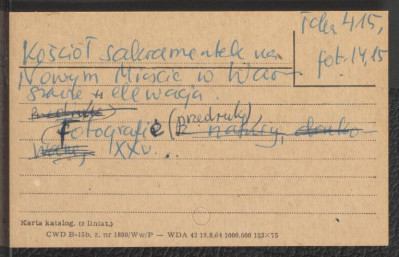 Teka 415,
fot. 14,15
Kościół sakramentek na
Nowym Mieście w War-
szawie elewacja
Fotografie (przedruky
z natury,
XXw...
Karta katalog. (z liniat.)
CWD B-15b, z. nr 1800/Ww/P — WDA 42 19.8.64 3000.000 123×75